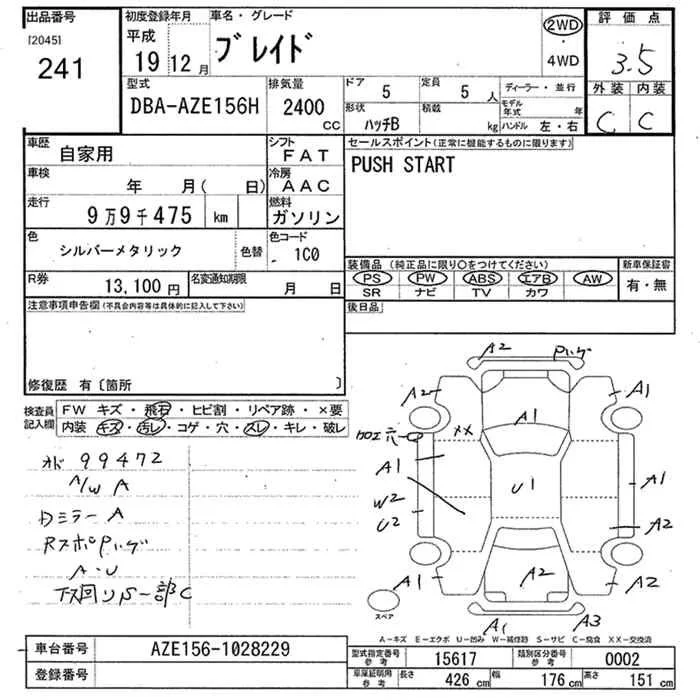 出品番号
[2045]
241
初度登録年月
平成
19 12 月
車名・グレード
ブレイド
2WD
4WD
評価点
3.5
外装 内装
C C
型式
DBA-AZE156H
排気量
2400
cc
ドア
5
定員
5 人
形状
ハッチB
積載
kg
ディーラー・並行
モデル年式 年
ハンドル 左・右
車歴
自家用
シフト
FAT
車検
年 月( 日)
冷房
AAC
走行
9万9千475 km
燃料
ガソリン
色
シルバーメタリック
色替
色コード
1C0
R券
13,100 円
名変通知期限
月 日
セールスポイント(正常に機能するものに限ります)
PUSH START
装備品(純正品に限り○をつけてください)
PS PW ABS エアB AW
SR ナビ TV カワ
新車保証書
有・無
後日品
注意事項申告欄(不具合内容等は具体的に記入して下さい)
修復歴 有〔箇所 〕
検査員
記入欄
FW キズ・飛石・ヒビ割・リペア跡・×要
内装 キズ・汚レ・コゲ・穴・スレ・キレ・破レ
99472
A/W A
Dミラー A
A・U
A2
A2
A1
A1
XX
A1
A1
U1
W2
U2
A2
A1
A2
A2
A1
A3
スペア
A-キズ E-エクボ U-凹み W-補修跡 S-サビ C-腐食 XX-交換済
車台番号
AZE156-1028229
登録番号
型式指定番号
参考
15617
類別区分番号
参考
0002
車庫証明用
参考
長さ
426 cm
幅
176 cm
高さ
151 cm